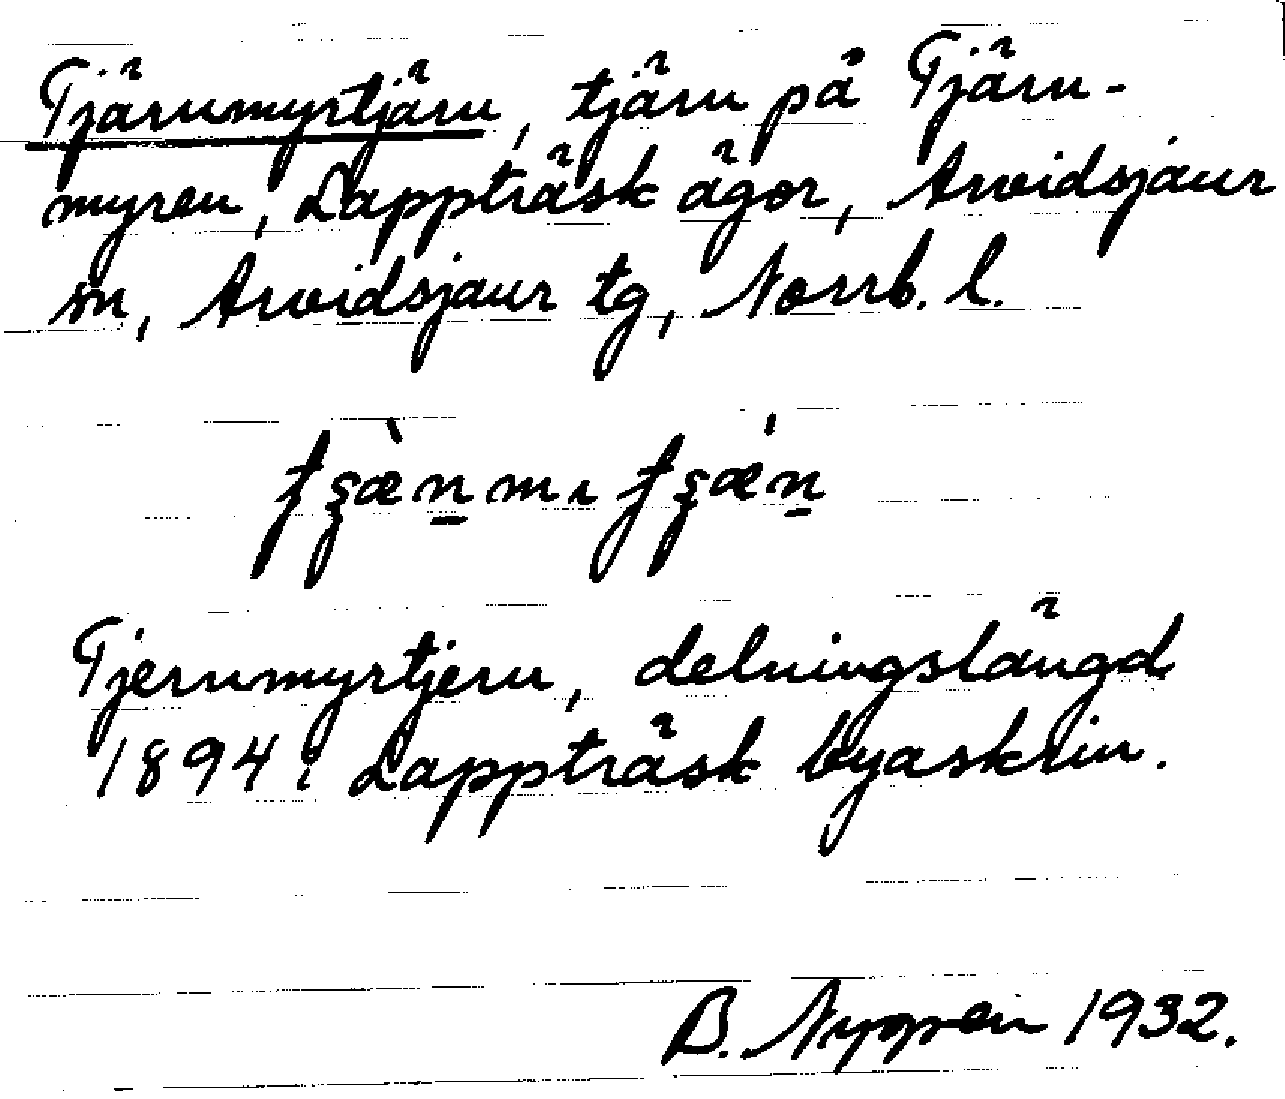 Tjärnmyrtjärn, tjärn på Tjärn-
myren, Lappträsk ägor, Arvidsjaur
sn, Arvidsjaur tg, Norrb. l.
Tjernmyrtjern, delningslängd
1894 i Lappträsk byaskrin.
B. 1932.